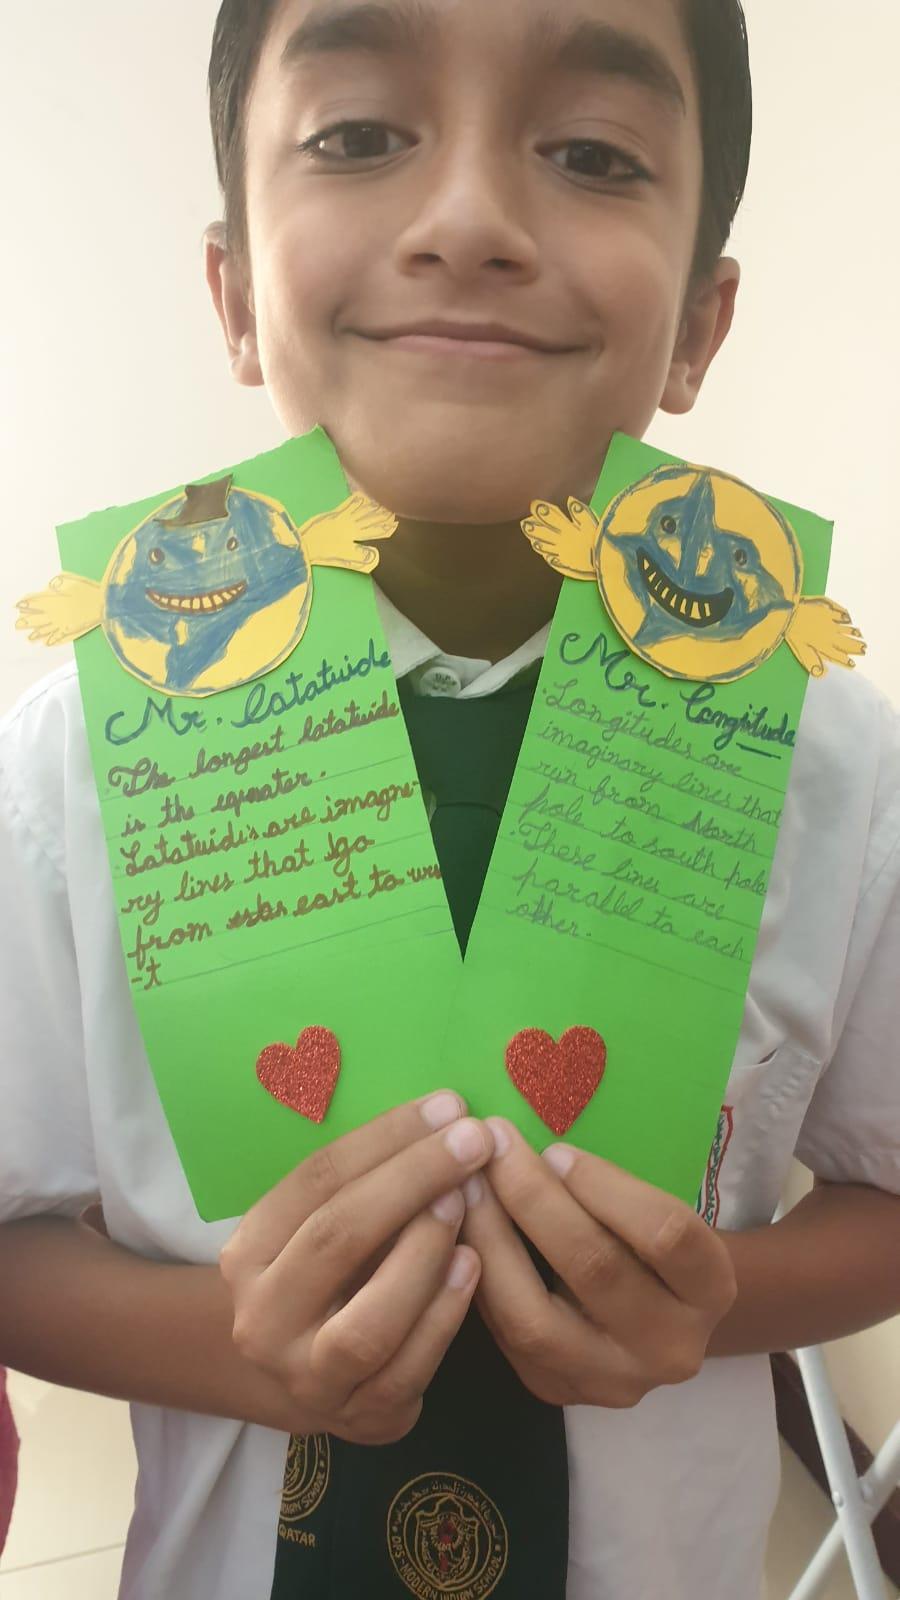 Mr. Latatuide
The longest latatuide
is the eqwater.
Latatuidis are imagne-
ry lines that go
from east to wes
-t
Mr. Longitude
Longitudes are
imaginary lines that
run from North
pole to south pole
These lines are
paralld to each
other.
INDIAN SCHOOL
QATAR
DPS-MODERN INDIAN SCHOOL